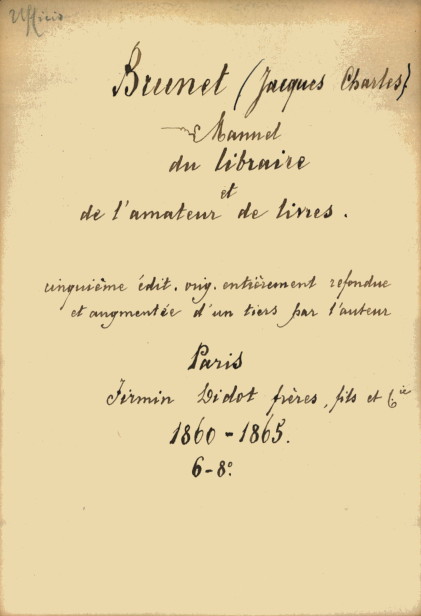 Ufficio
Brunet (Jacques Charles)
Manuel
du libraire
et
de l'amateur de livres.
cinquième édit. orig. entièrement refondue
et augmentée d'un tiers par l'auteur
Paris
Firmin Didot frères, fils et Cie
1860-1865.
6-8°.